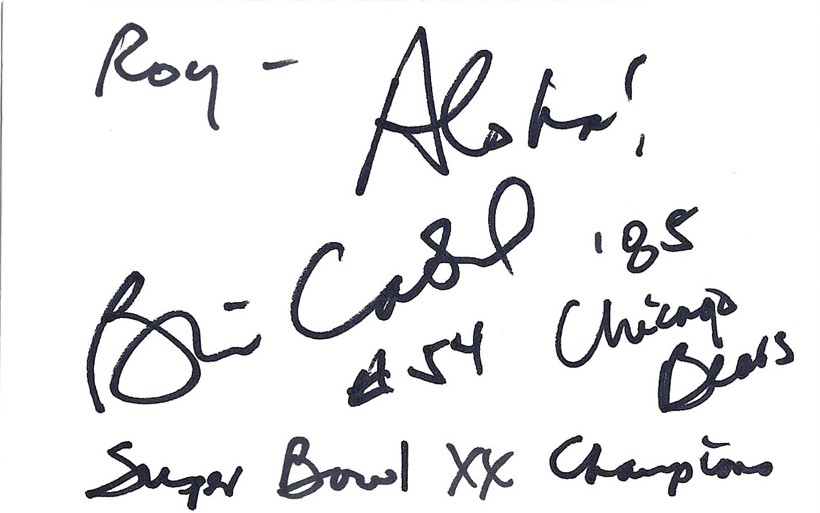 Roy - Aloha!
Brian Cabral '85
#54 Chicago
Bears
Super Bowl XX Champions